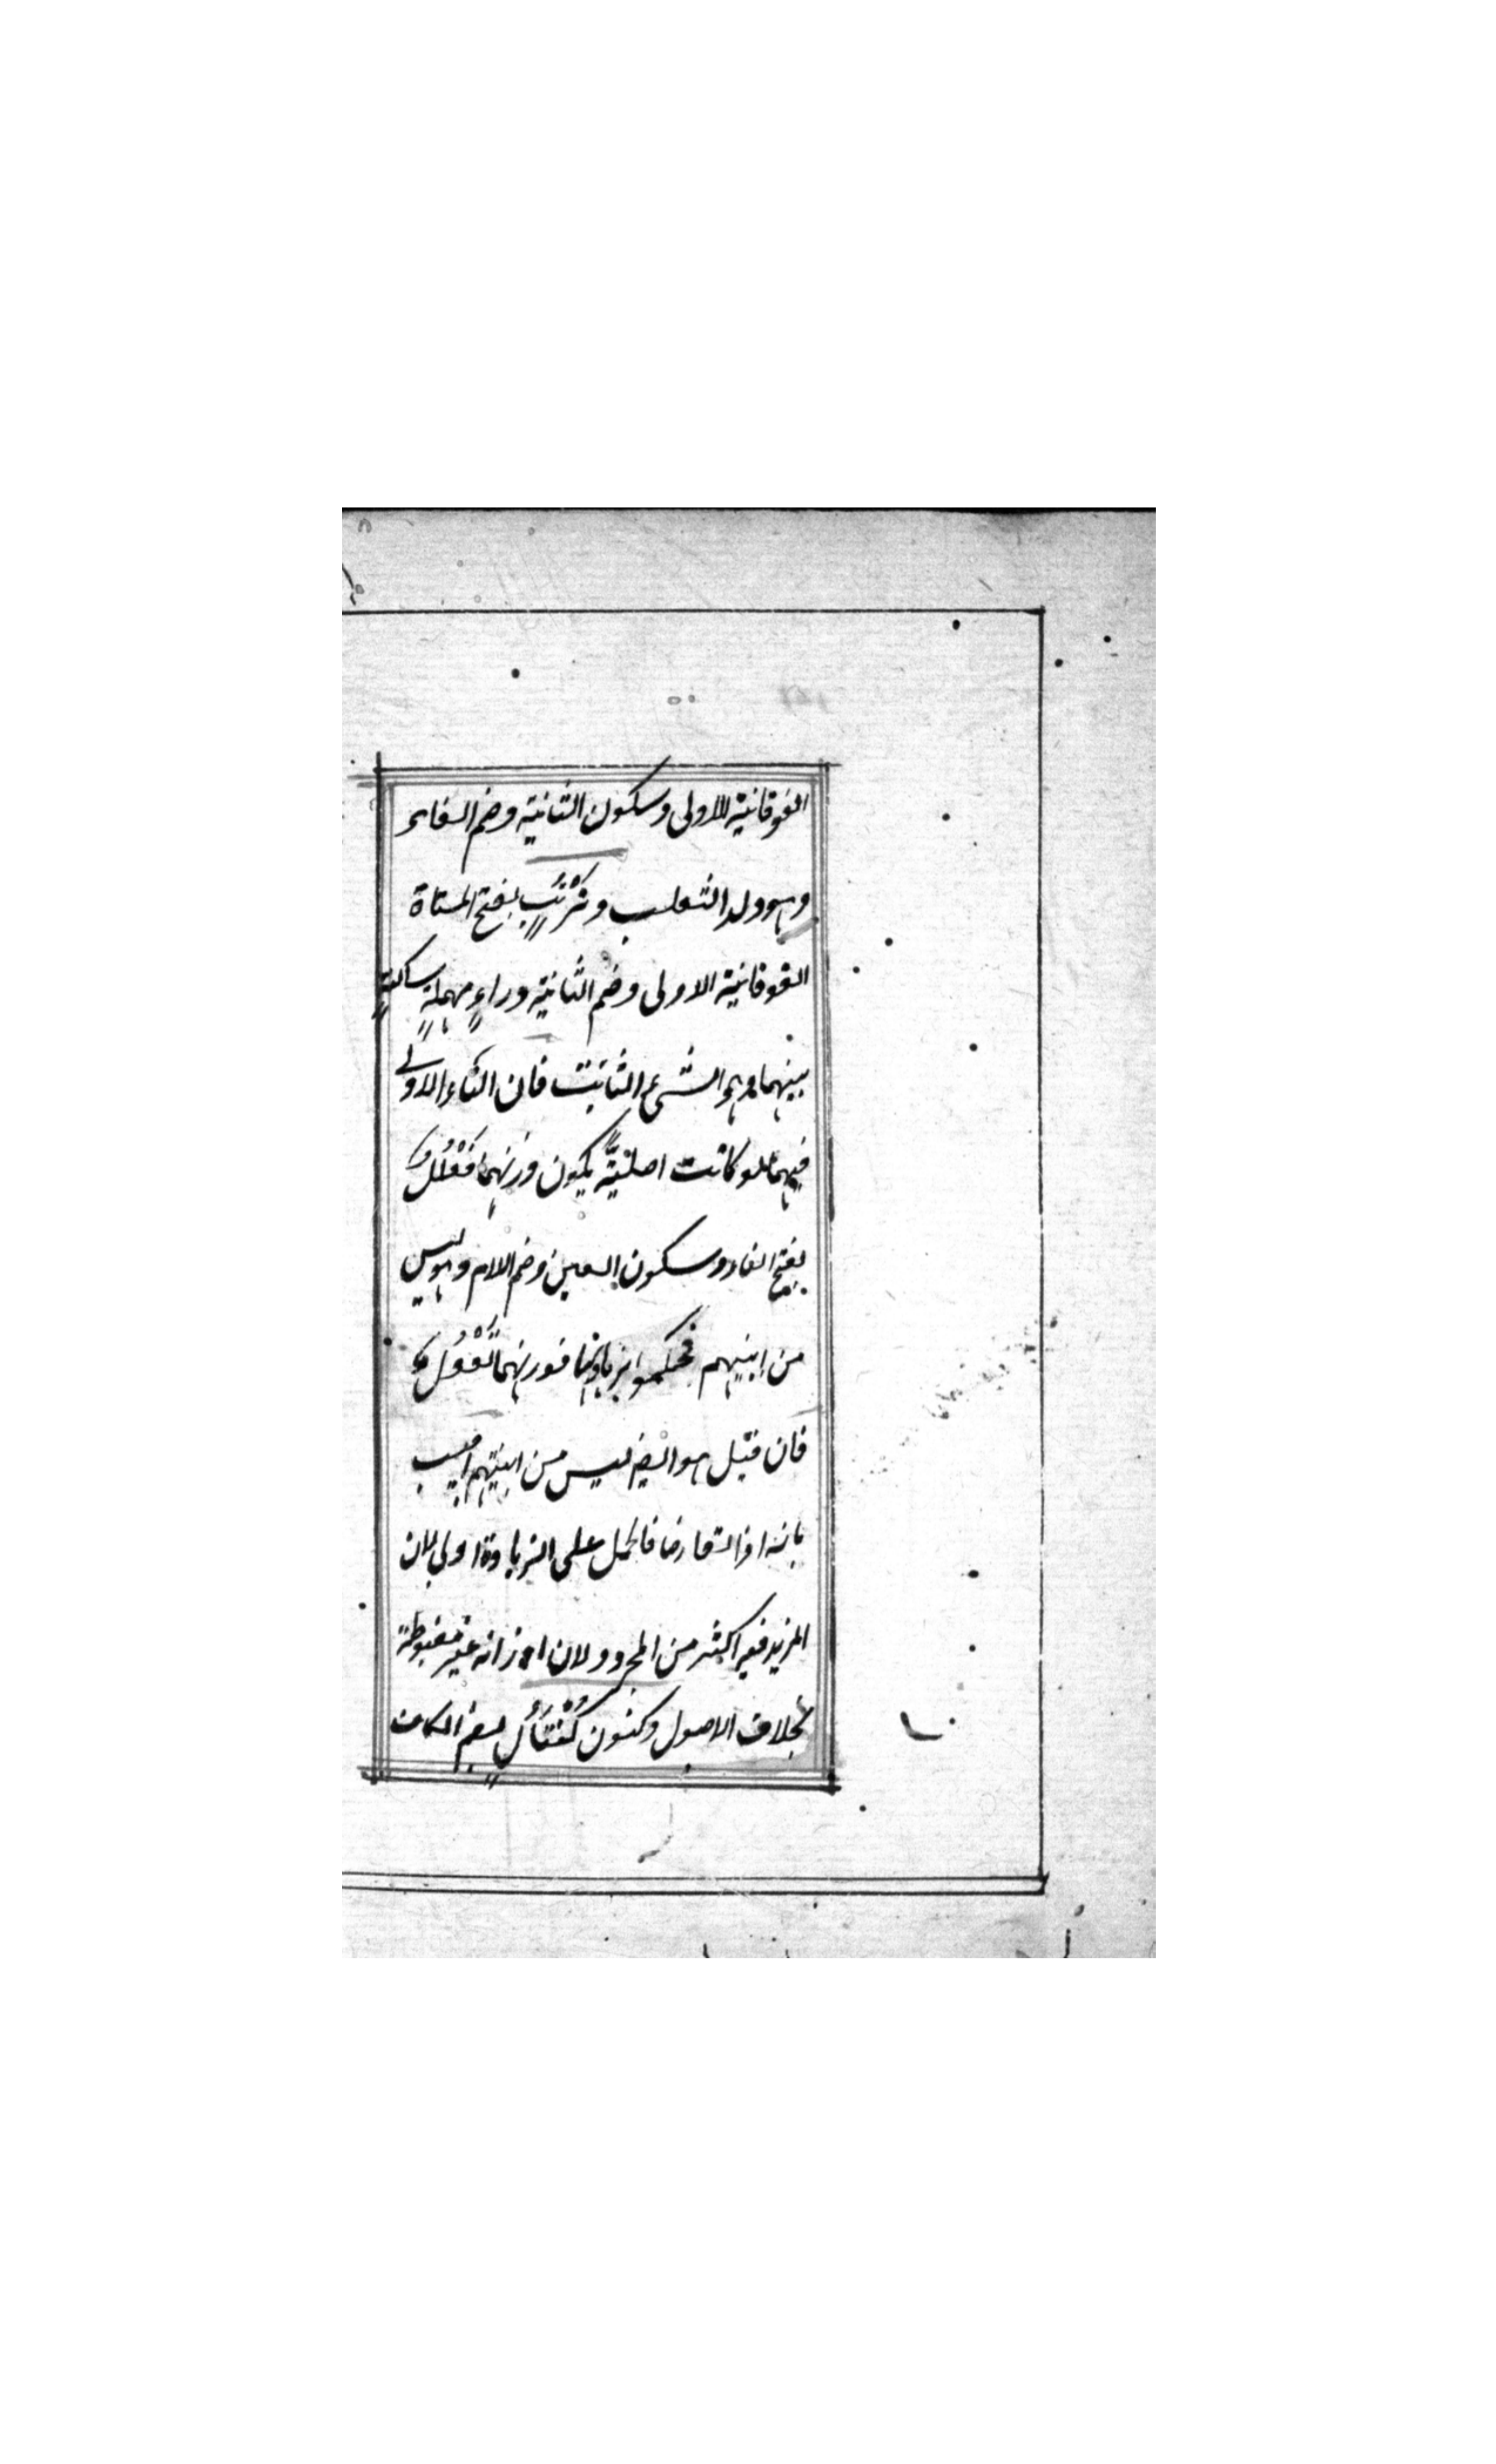 الفوقانية الاولى وسكون الثانية وضم الفاء
وهو ولد الثعلب وتُرْتُبٍ بفتح المثناة
الفوقانية الاولى وضم الثانية وراءٍ مهملةٍ ساكنةٍ
بينهما وهو الشيء الثابت فان التاء الاولى
فيهما لو كانت اصليةً يكون وزنهما فَعْلُلٌ
بفتح الفاء وسكون العين وضم اللام وهو ليس
من ابنيتهم فحكموا بزيادتها فوزنهما تَفْعُلٌ
فان قيل هو ايضا ليس من ابنيتهم اجيب
بانه اذا تعارضا فالحمل على الزيادة اولى لان
المزيد فيه اكثر من المجرد ولان اوزانه غير مضبوطة
بخلاف الاصول وكنون كُنْتَأْلٍ بضم الكاف